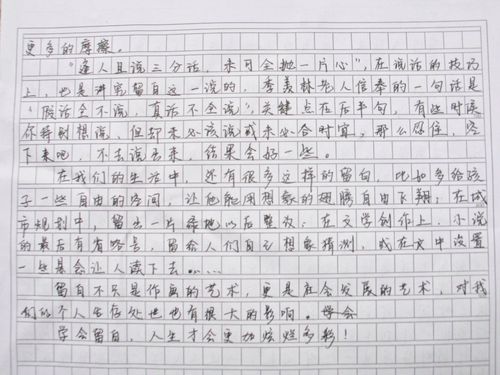 更多的摩擦。
"逢人且说三分话，未可全抛一片心"，在说话的技巧
上，也是讲究留白这一说的，季羡林老人信奉的一句话是
"假话全不说，真话不全说"，关键点在后半句，有些时候
你特别想说，但却未必该说或未必合时宜，那么忍住，
下来吧，不去说出来，结果会好一些。
在我们的生活中，还有很多这样的留白，比如多给孩
子一些自由的空间，让他能用想象的翅膀自由飞翔；在城
市规划中，留出一片绿地以后整改；在文学创作上，小说
的最后有省略号，留给人们自己想象猜测，或在文中设置
一些悬念让人读下去……
留白不只是作画的艺术，更是社会发展的艺术，对我
们的个人生存处世也有很大的影响。学会
学会留白，人生才会更加炫烂多彩！